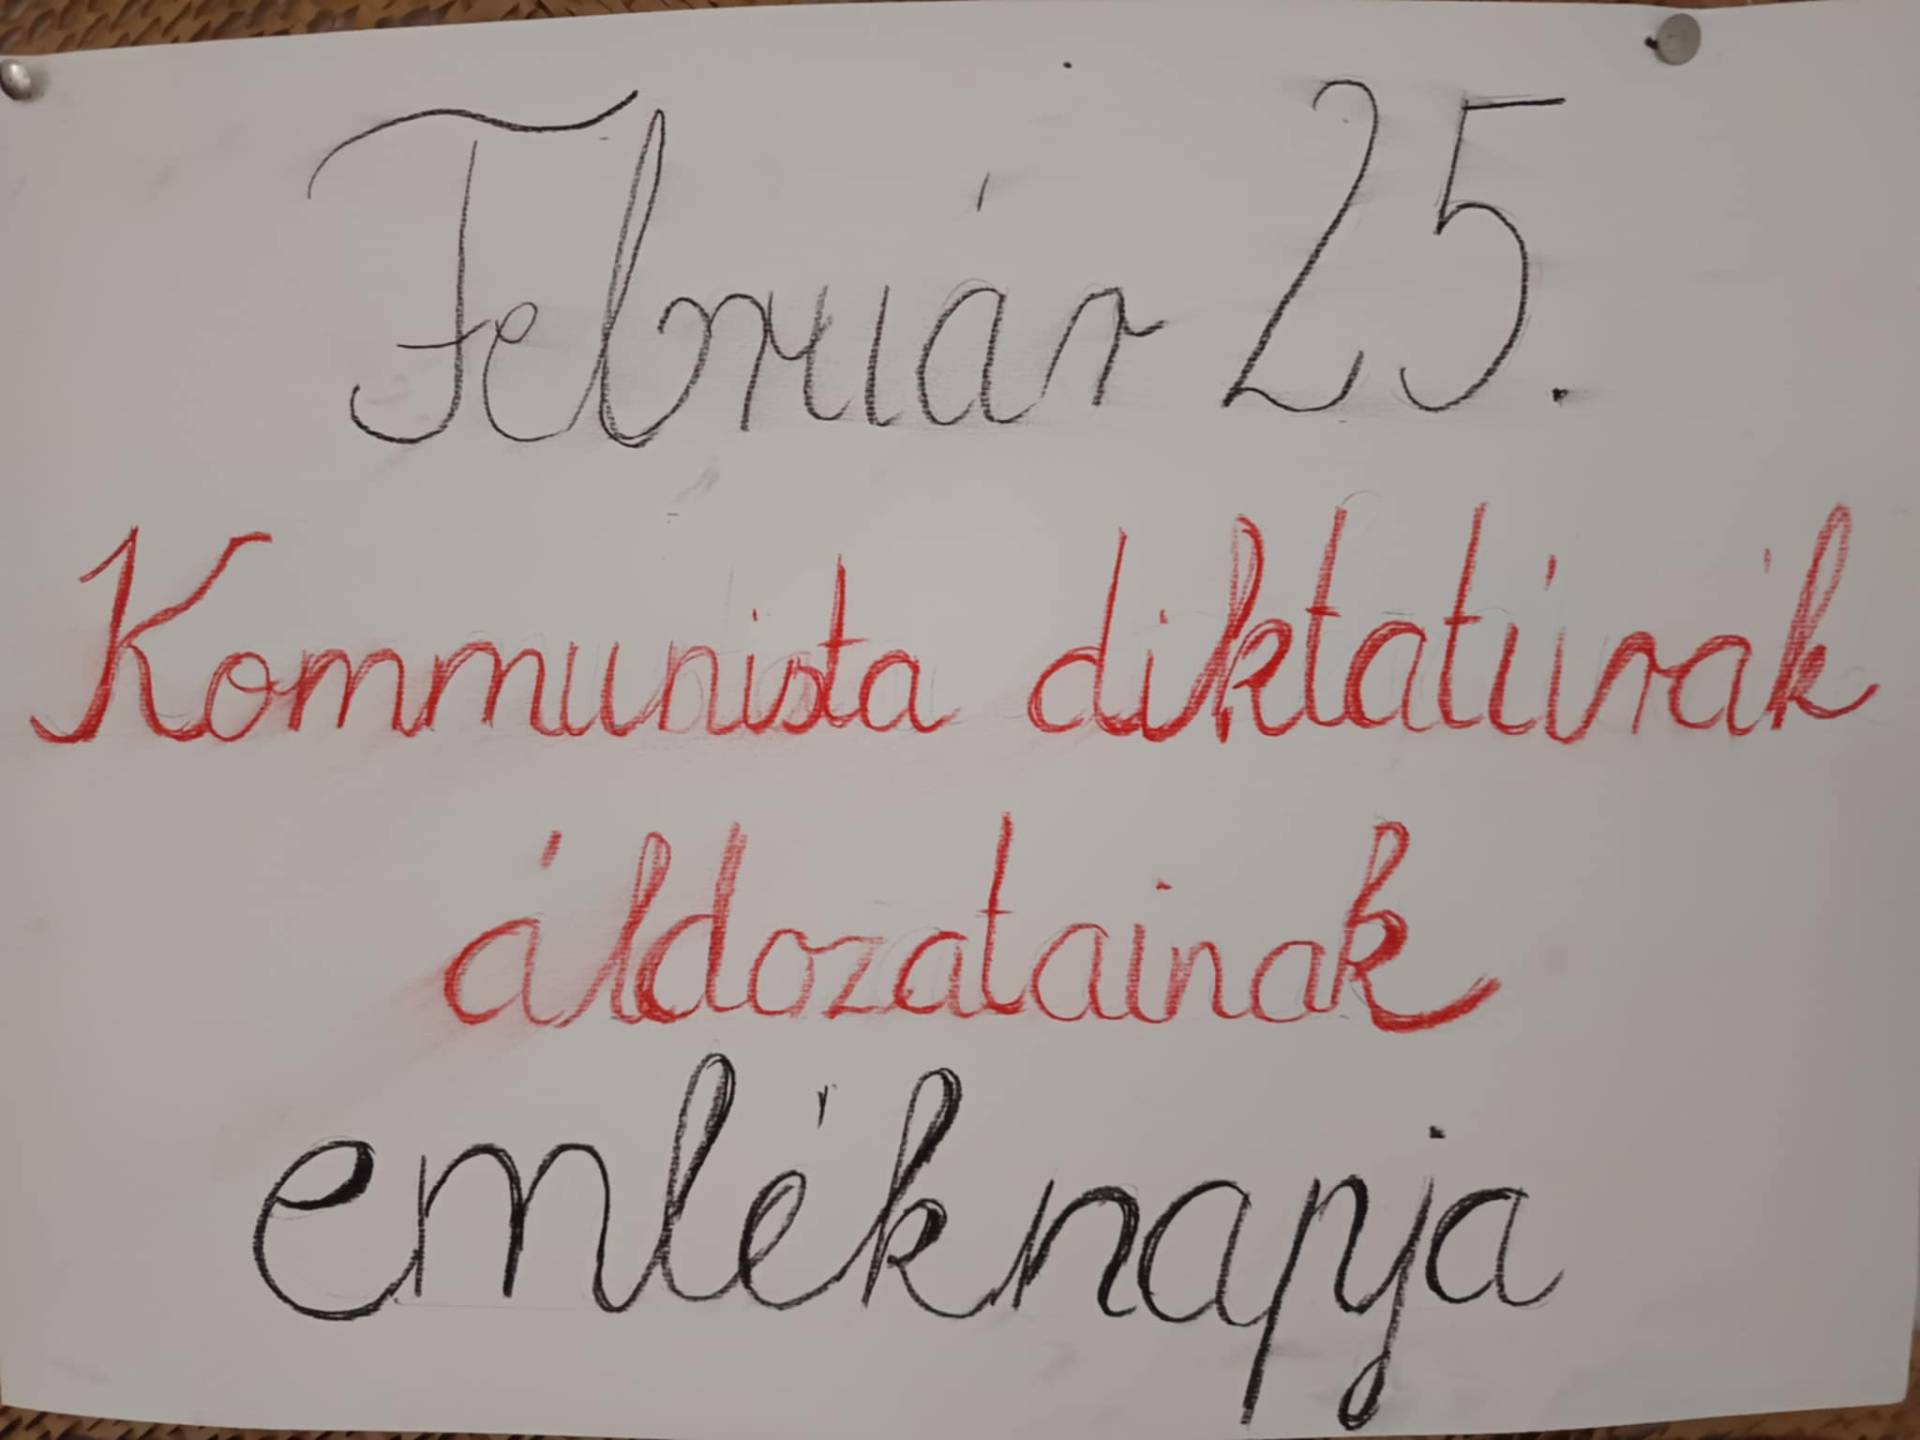 Február 25.
Kommunista diktatúrák
áldozatainak
emléknapja